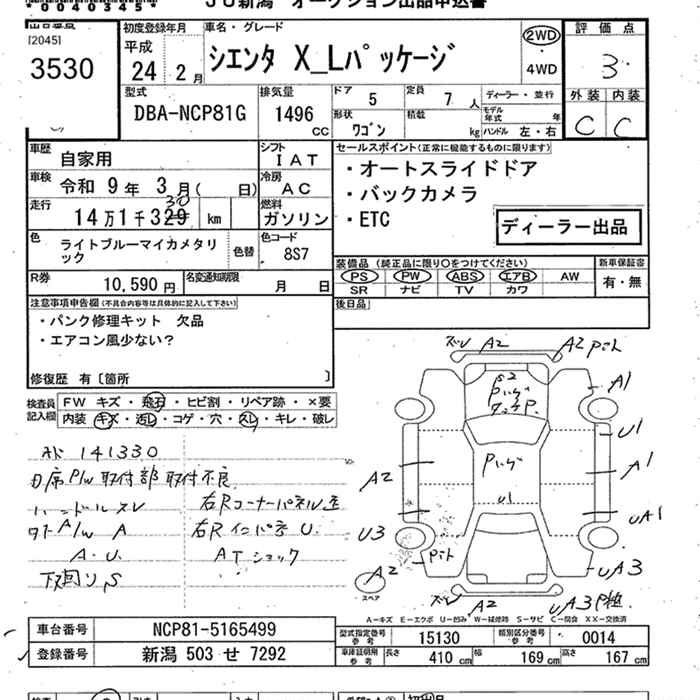 00403450
JU新潟 オークション出品申込書
出品番号
[20451]
3530
初度登録年月
平成
24年2月
車名・グレード
シエンタ X_Lパッケージ
2WD
4WD
評価点
3
外装 内装
C C
型式
DBA-NCP81G
排気量
1496 CC
ドア 5
定員 7 人
形状 ワゴン
積載 kg
ディーラー・並行
モデル年式 年
ハンドル 左・右
車歴 自家用
シフト IAT
車検 令和 9年 3月( 日)
冷房 AC
走行 14万1千329 km
30
燃料 ガソリン
色 ライトブルーマイカメタリック
色替
色コード 8S7
R券 10,590円
名変通知期限 月 日
セールスポイント(正常に機能するものに限ります)
・オートスライドドア
・バックカメラ
・ETC
ディーラー出品
装備品(純正品に限り○をつけてください)
新車保証書
PS PW ABS エアB AW
有・無
SR ナビ TV カワ
後日品
注意事項申告欄(不具合内容等は具体的に記入して下さい)
・パンク修理キット 欠品
・エアコン風少ない?
修復歴 有〔箇所 〕
検査員記入欄
FW キズ・飛石・ヒビ割・リペア跡・×要
内装 キズ・汚レ・コゲ・穴・スレ・キレ・破レ
141330
P/W取付部 取付不良
ハンドルスレ
右Rコーナーパネル歪
A/W A
右Rインパネ U.
A.U.
ATショック
下回りS
ズレ A2
A2 Pハト
S2
A1
U1
A1
A2
U1
U3
uA1
A2
uA3
ズレ A2
uA3
スペア
A−キズ E−エクボ U−凹み W−補修跡 S−サビ C−腐食 XX−交換済
車台番号 NCP81-5165499
登録番号 新潟 503 せ 7292
型式指定番号 参考 15130
類別区分番号 参考 0014
車庫証明用 参考
長さ 410 cm
幅 169 cm
高さ 167 cm